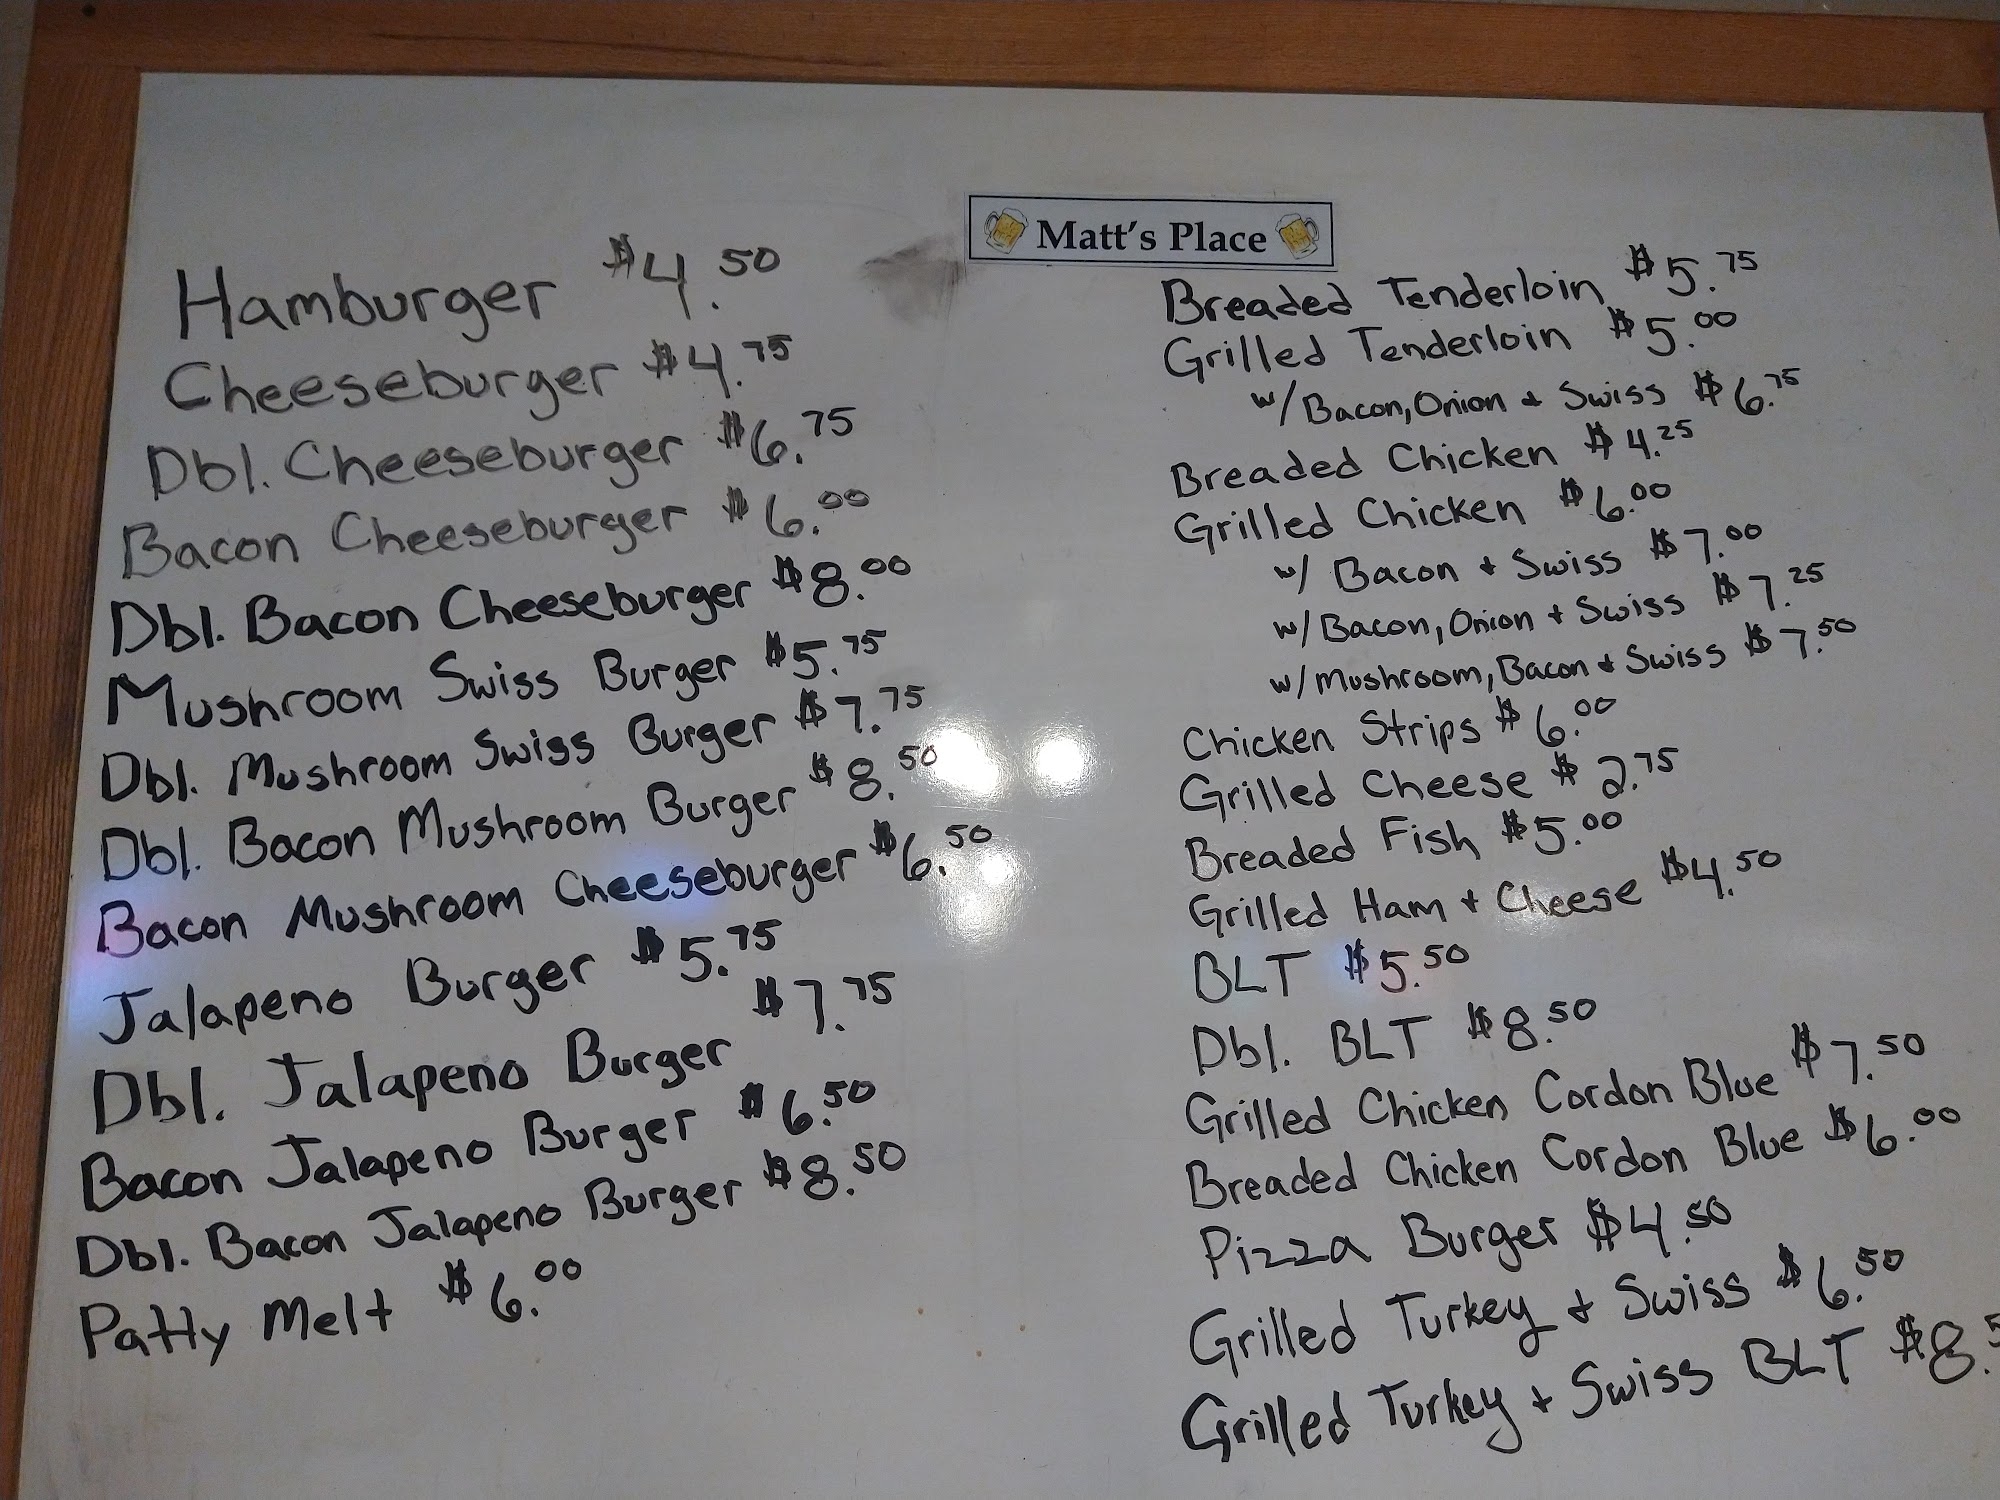 Matt's Place
Hamburger $4.50
Cheeseburger $4.75
Dbl. Cheeseburger $6.75
Bacon Cheeseburger $6.00
Dbl. Bacon Cheeseburger $8.00
Mushroom Swiss Burger $5.75
Dbl. Mushroom Swiss Burger $7.75
Dbl. Bacon Mushroom Burger $8.50
Bacon Mushroom Cheeseburger $6.50
Jalapeno Burger $5.75
Dbl. Jalapeno Burger $7.75
Bacon Jalapeno Burger $6.50
Dbl. Bacon Jalapeno Burger $8.50
Patty Melt $6.00
Breaded Tenderloin $5.75
Grilled Tenderloin $5.00
w/Bacon, Onion + Swiss $6.75
Breaded Chicken $4.25
Grilled Chicken $6.00
w/ Bacon + Swiss $7.00
w/Bacon, Onion + Swiss $7.25
w/Mushroom, Bacon + Swiss $7.50
Chicken Strips $6.00
Grilled Cheese $2.75
Breaded Fish $5.00
Grilled Ham + Cheese $4.50
BLT $5.50
Dbl. BLT $8.50
Grilled Chicken Cordon Blue $7.50
Breaded Chicken Cordon Blue $6.00
Pizza Burger $4.50
Grilled Turkey + Swiss $6.50
Grilled Turkey + Swiss BLT $8.5